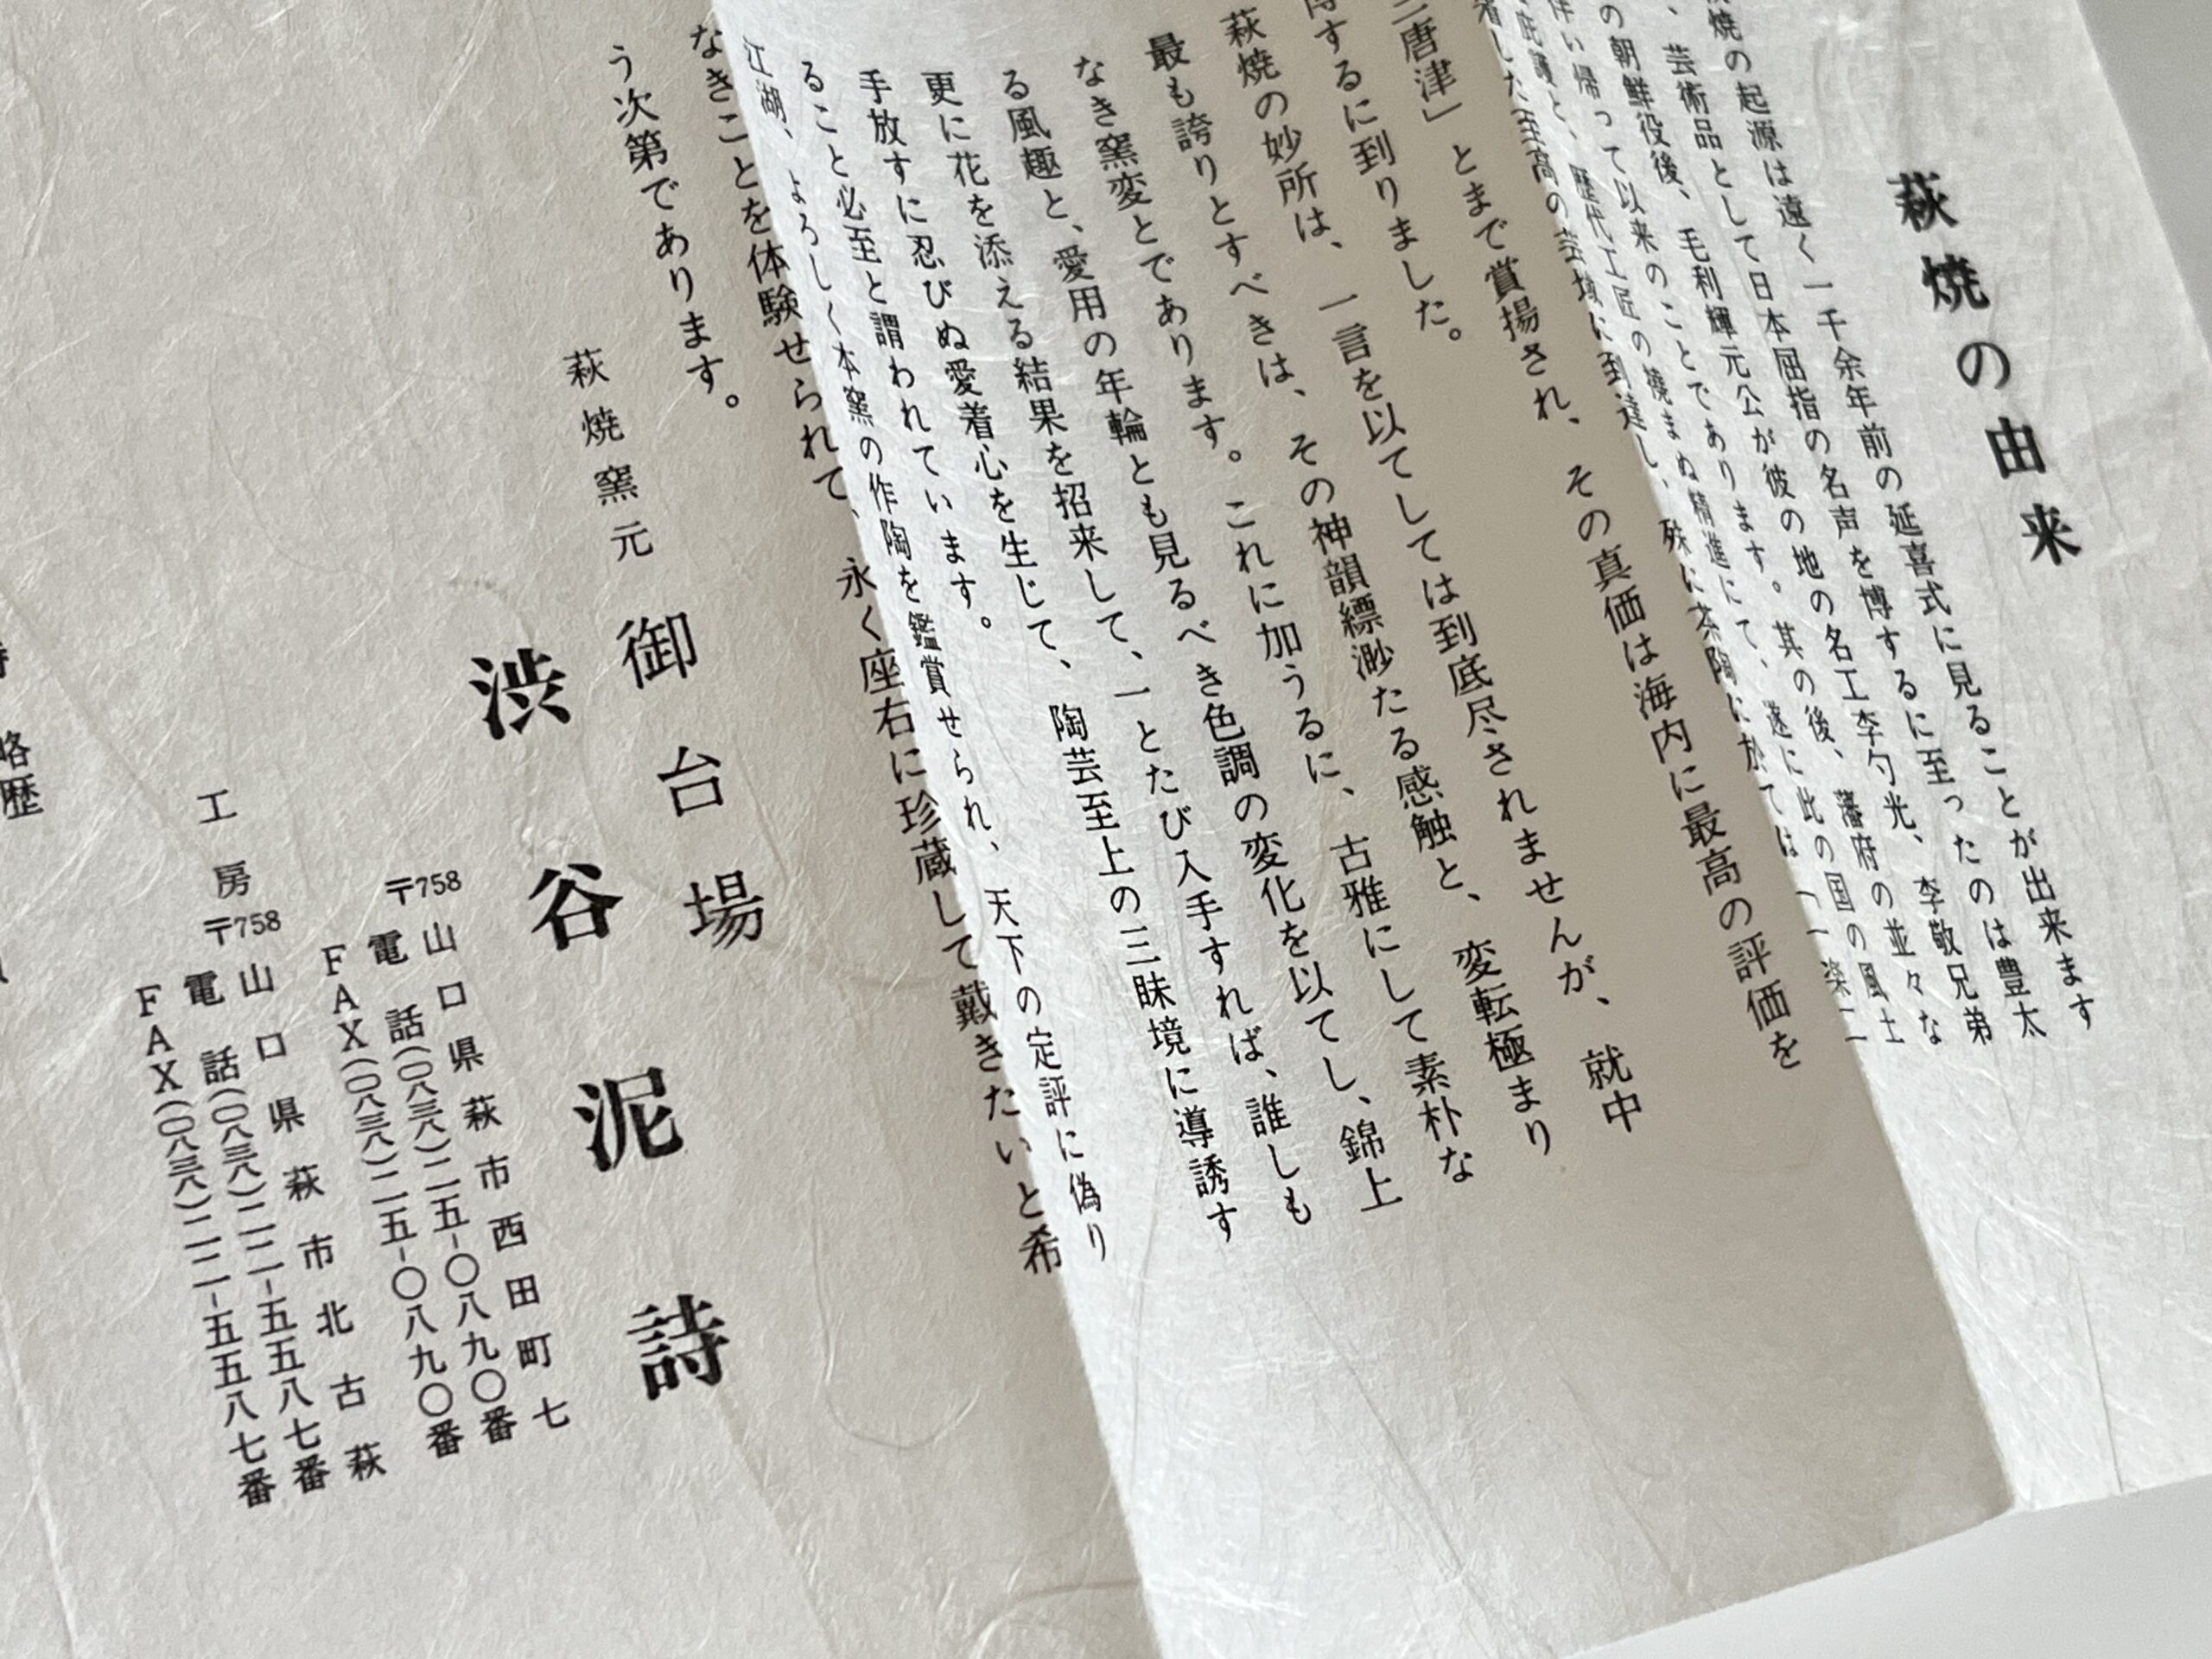 萩焼の由来
焼の起源は遠く一千余年前の延喜式に見ることが出来ます
、芸術品として日本屈指の名声を博するに至ったのは豊太
の朝鮮役後、毛利輝元公が彼の地の名工李勺光、李敬兄弟
伴い帰って以来のことであります。其の後、藩府の並々な
庇護と、歴代工匠の撓まぬ精進にて、遂に此の国の風土
着した至高の芸域に到達し、殊に茶陶に於ては「一楽二
三唐津」とまで賞揚され、その真価は海内に最高の評価を
得するに到りました。
萩焼の妙所は、一言を以てしては到底尽されませんが、就中
最も誇りとすべきは、その神韻縹渺たる感触と、変転極まり
なき窯変とであります。これに加うるに、古雅にして素朴な
る風趣と、愛用の年輪とも見るべき色調の変化を以てし、錦上
更に花を添える結果を招来して、一とたび入手すれば、誰しも
手放すに忍びぬ愛着心を生じて、陶芸至上の三昧境に導誘す
ること必至と謂われています。
江湖、よろしく本窯の作陶を鑑賞せられ、天下の定評に偽り
なきことを体験せられて、永く座右に珍蔵して戴きたいと希
う次第であります。
萩焼窯元
御台場
渋谷泥詩
〒758山口県萩市西田町七
電話(〇八三八)二五-〇八九〇番
FAX(〇八三八)二五-〇八九〇番
工房
〒758山口県萩市北古萩
電話(〇八三八)二二-五五八七番
FAX(〇八三八)二二-五五八七番
略歴